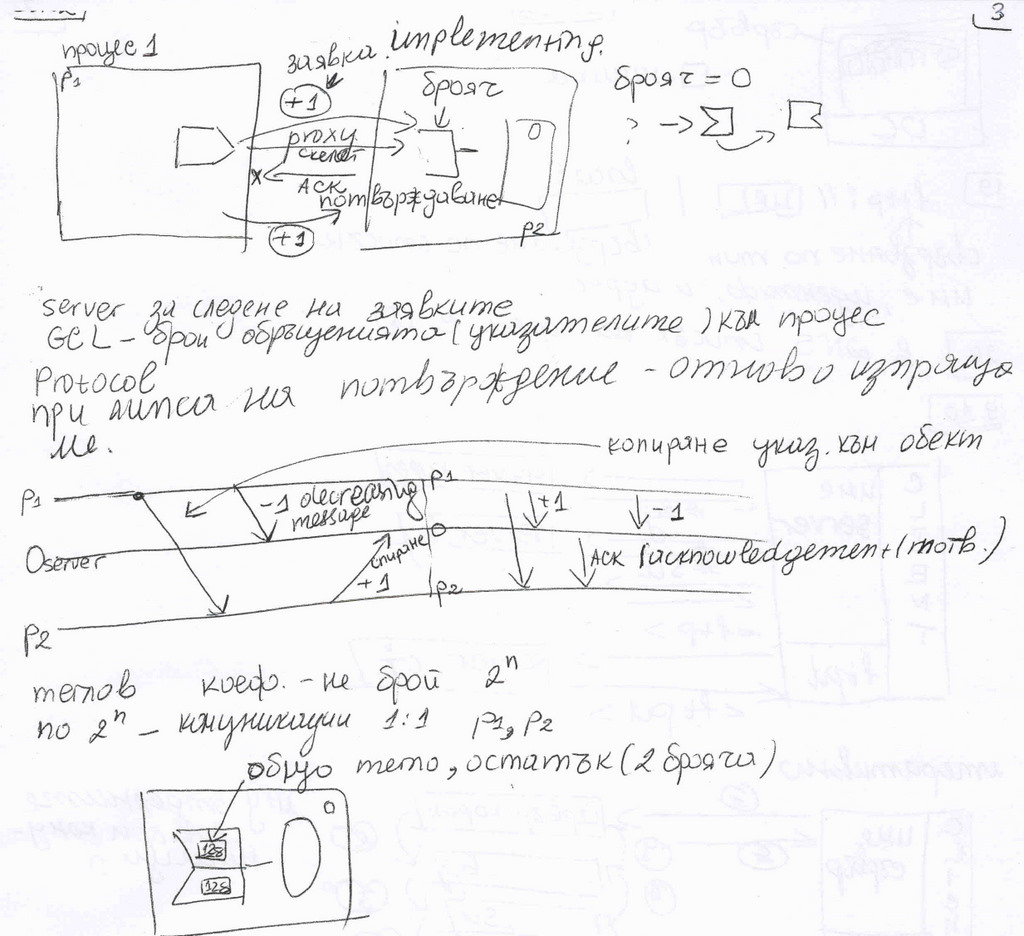 3
процес 1
P1
заявка
implementing.
+1
брояч
брояч = 0
proxy
скелет
ACK
потвърждаване
+1
O
P2
server за следене на заявките
GCL - брои обръщенията (указателите) към процес
Protocol
при липса на потвърждение - отново изпраща
ме.
копиране указ. към обект
P1
-1 decreasing
message
P1
+1
-1
Oserver
спиране
+1
O
ACK (acknowledgement (потв.)
P2
P2
теглов коеф. - не брой 2^n
по 2^n - комуникации 1:1 P1, P2
общо тегло, остатък (2 брояча)
128
128
O